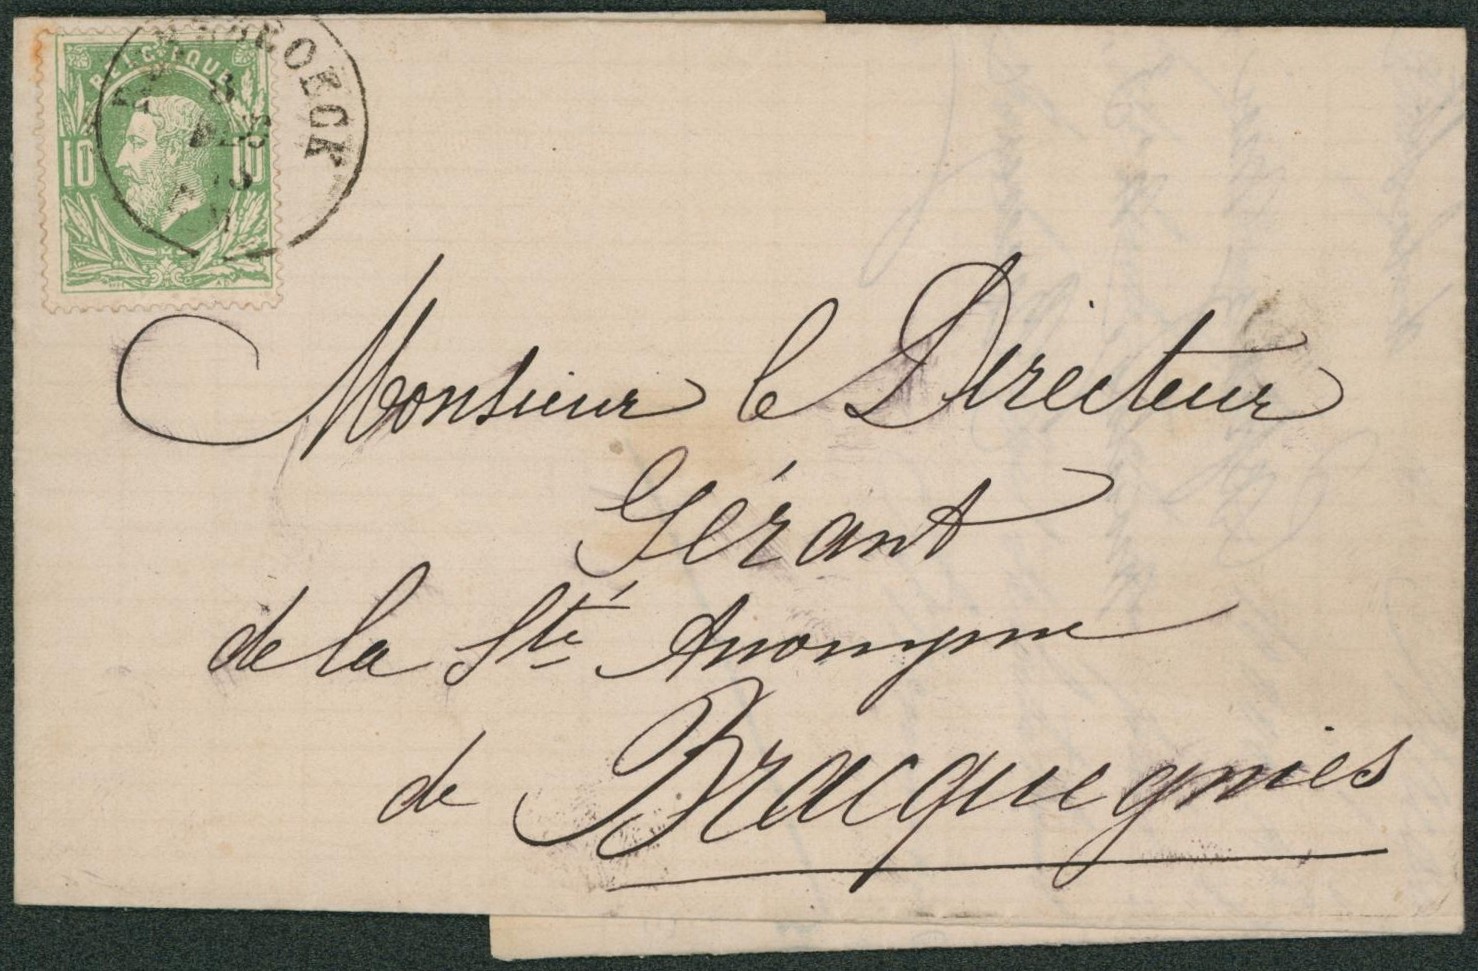 BELGIQUE
10 10
8
DEC
Monsieur le Directeur
Gérant
de la Sté Anonyme
de Bracquegnies